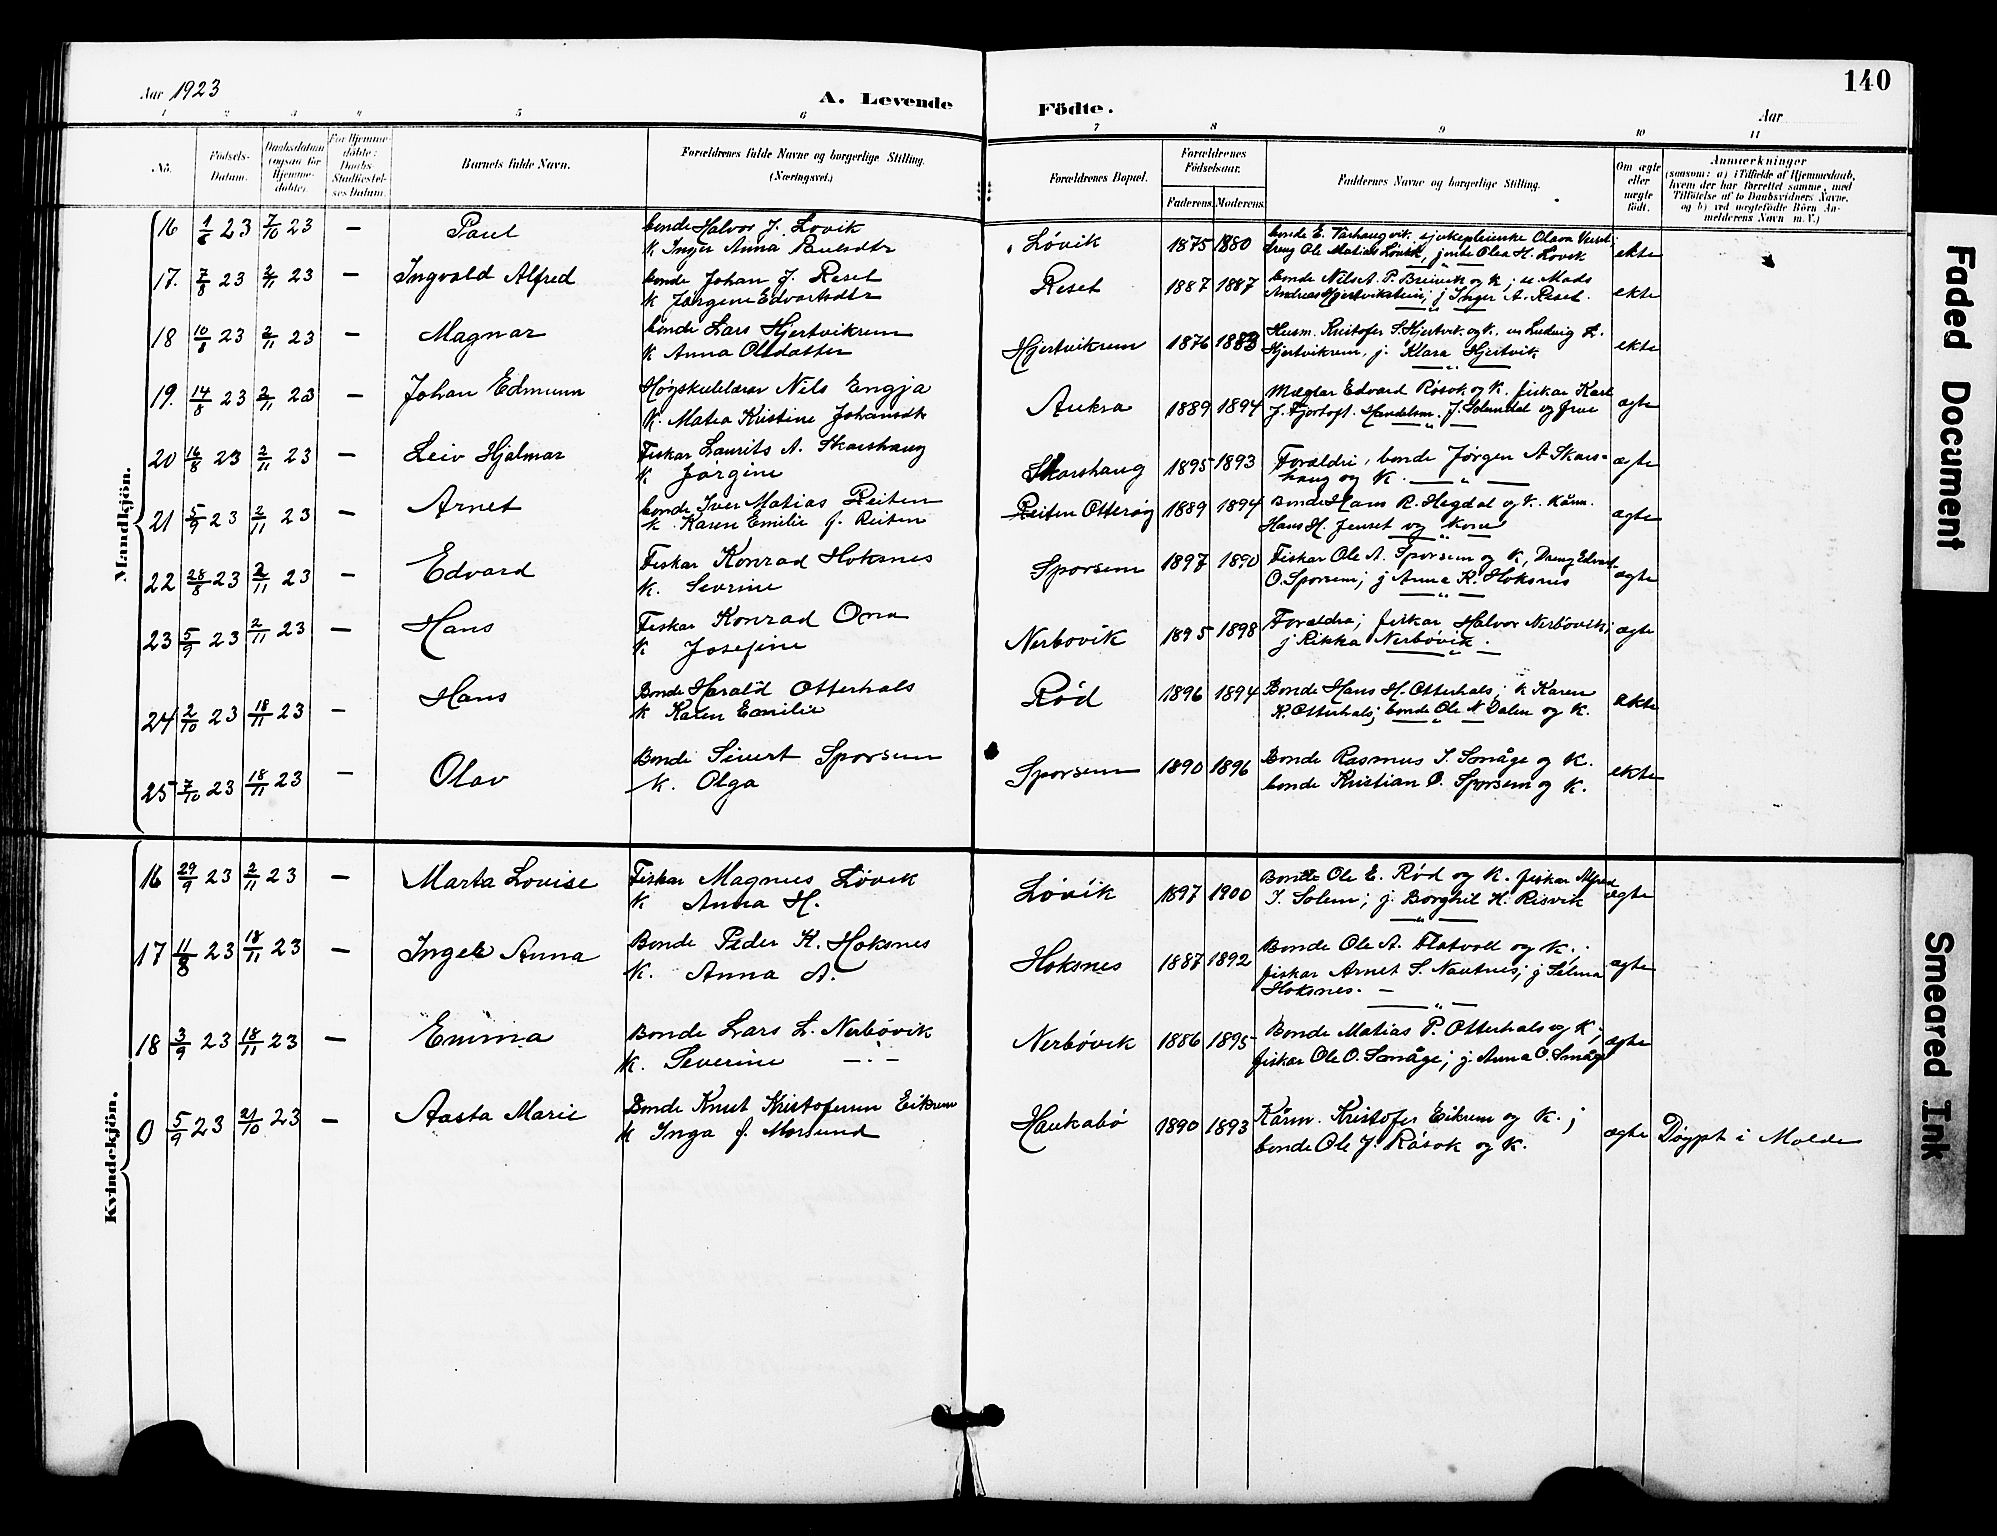 140
Aar 1923
A. Levende
Födte.
Aar
1 2 3 4 5 6 7 8 9 10 11
No. Födsels-Datum. Daabsdatum (ogsaa for Hjemme-döbte). For Hjemme-döbte: Daabs-Stadfæstel-ses Datum. Barnets fulde Navn. Forældrenes fulde Navne og borgerlige Stilling. (Næringsvei.) Forældrenes Bopæl. Forældrenes Födselsaar. Faderens. Moderens. Faddernes Navne og borgerlige Stilling. Om ægte eller uægte födt. Anmærkninger
(saasom: a) i Tilfælde af Hjemmedaab,
hvem der har forrettet samme, med
Tilföielse af to Daabsvidners Navne,
og b) ved uægtefödte Börn An-
melderens Navn m. V.)
Mandkjön.
16 1/8 23 7/10 23 — Paul bonde Halvor J. Lovik Løvik 1875 1880 bonde E. Varhaugvik, sjukepleierske Olava
K. Inger Anna Paulsdtr dreng Ole Matias Lovik, jente Olea H. Lovik ekte
17. 7/8 23 2/11 23 — Ingvald Alfred bonde Johan J. Reset Reset 1887 1887 bonde Nils A. P. Breivik og K; u. Mads
K Jørgine Edvartsdtr Andreas Hjertvikstein; j Inger A. Reset. ekte
18 10/8 23 2/11 23 — Magnar bonde Lars Hjertvikrem Hjertvikrem 1876 1883 Husm. Kristofer S. Hjertvik og K. un Ludvig L.
K Anna Olsdatter Hjertvikrem, j. Klara Hjertvik ekte
19. 14/8 23 2/11 23 — Johan Edmunn Høgskulelærar Nils Engja Aukra 1889 1894 Mægler Edvard Røsok og K. fiskar Karl
K. Matea Kristine Johansdtr J. Fjortoft. Handelsm. J. Solemdal og frue ægte
20 16/8 23 2/11 23 — Leiv Hjalmar Fiskar Laurits A. Skarshaug Skarshaug 1895 1893 Forældri, bonde Jørgen A Skars-
K. Jørgine haug og K. ægte
21 5/9 23 2/11 23 — Arnet bonde Iver Matias Reiten Reiten Otterøy 1889 1894 Bonde Hans R. Hegdal og K. Kårm.
K. Karen Emilie f. Reiten Hans H. Jenset og kone ægte
22 28/8 23 2/11 23 — Edvard Fiskar Konrad Hoksnes Sporsem 1897 1890 Fiskar Ole A. Sporsem og K, Dreng Edvart
K. Sevrine O. Sporsem; j Anna K. Hoksnes ægte
23 5/9 23 2/11 23 — Hans Fiskar Konrad Ona Nerbøvik 1895 1898 Forældra; fiskar Halvor Nerbøvik;
K Josefine j Rikka Nerbøvik. ægte
24 2/10 23 18/11 23 — Hans Bonde Harald Otterhals Rød 1896 1894 Bonde Hans H. Otterhals; K Karen
K Karen Emilie K. Otterhals; bonde Ole N Dalen og K. ekte
25 7/10 23 18/11 23 — Olav Bonde Sivert Sporsem Sporsem 1890 1896 Bonde Rasmus I. Småge og K.
K. Olga bonde Kristian O. Sporsem og K. ekte
Kvindekjön.
16 29/9 23 2/11 23 — Marta Lovise Fiskar Magnus Løvik Løvik 1897 1900 Bonde Ole E. Rød og K. fiskar Alfred
K Anna H. I. Solem; j. Borghil H. Risvik ægte
17 11/8 23 18/11 23 — Inger Anna Bonde Peder K. Hoksnes Hoksnes 1887 1892 Bonde Ole A. Flatvoll og K.;
K. Anna A. fiskar Arnet S. Nautnes; j Selma ægte
Hoksnes. —
18 3/9 23 18/11 23 — Emma Bonde Lars L. Nerbøvik Nerbøvik 1886 1895 Bonde Matias P. Otterhals og K;
K. Severine —"— fiskar Ole O. Småge; j Anna O. Småge ægte
0 5/9 23 21/10 23 — Aasta Marie Bonde Knut Kristofersen Eikrem Haukabø 1890 1893 Kårm. Kristofer Eikrem og K.;
K Inga f. Morsund bonde Ole J. Røsok og K. ægte Døypt i Molde
Faded Document
Smeared Ink